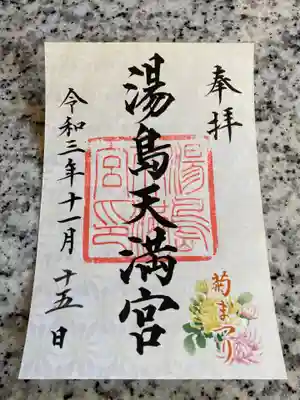 奉拝
湯島天満宮
令和三年十一月十五日
菊まつり